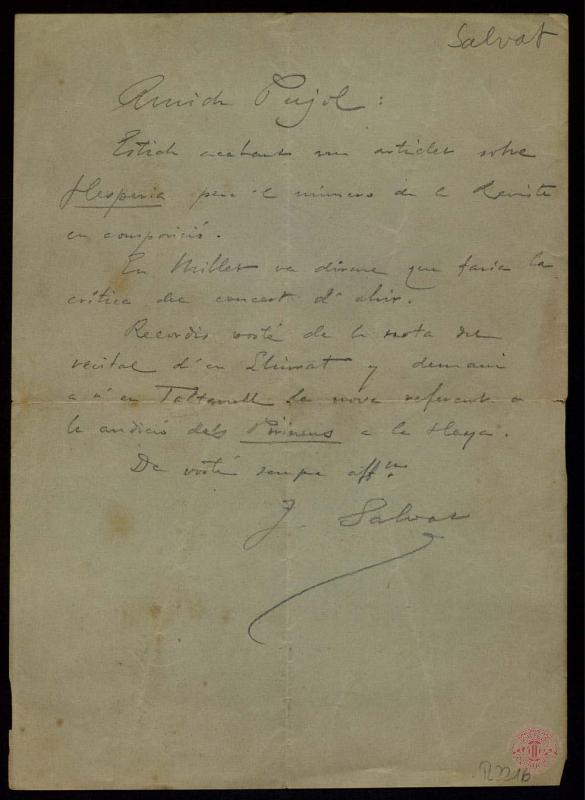 Salvat
Amich Pujol:
Estich acabant un article sobre
Hesperia per 'l número de la Revista
en composició.
En Millet va dirme que faria la
crítica del concert d' ahir.
Recordis vosté de la nota del
recital d' en Llimat y demani
a n' en Taltavull la nova referent a
la audició dels Pirineus a la Haya.
De vosté sempre affm.
J. Salvat